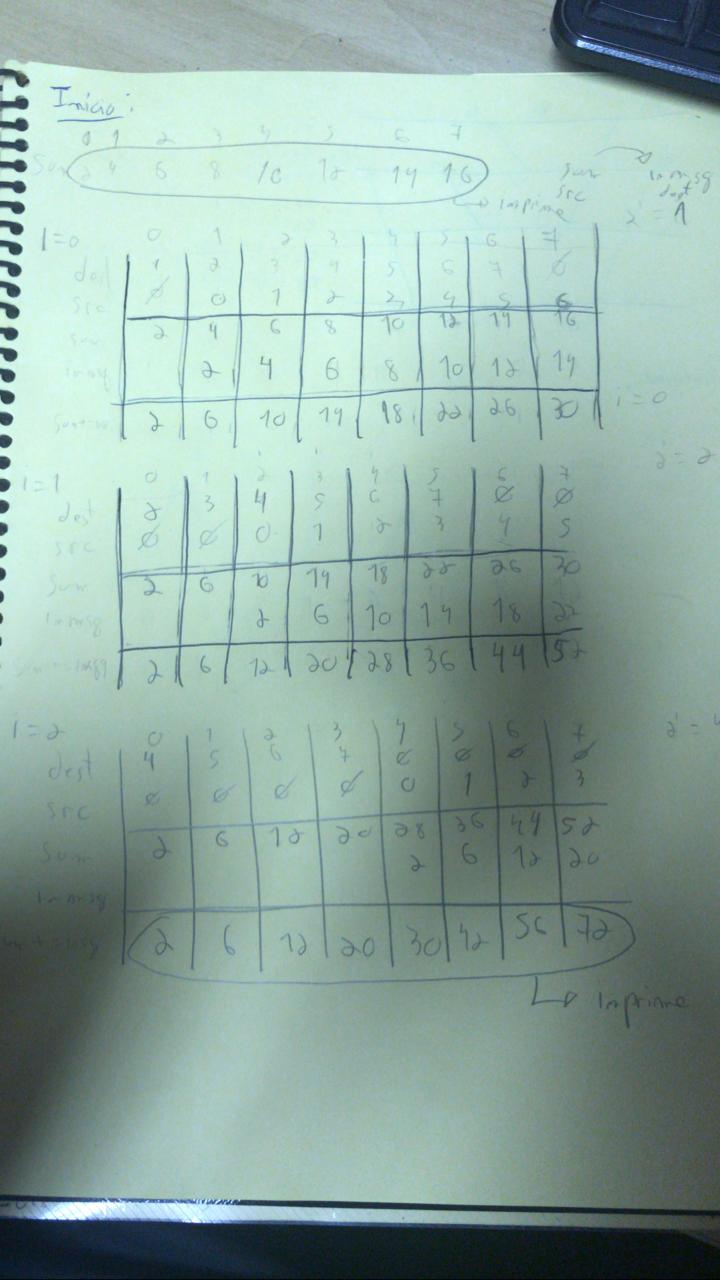 Início:
0 1 2 3 4 5 6 7
Sum 2 4 6 8 10 12 14 16
sum inmsg
src dest
imprime
2^i = 1
i=0 0 1 2 3 4 5 6 7
dest 1 2 3 4 5 6 7 Ø
src Ø 0 1 2 3 4 5 6
sum 2 4 6 8 10 12 14 16
inmsg 2 4 6 8 10 12 14
2 6 10 14 18 22 26 30 i=0
2^i = 2
i=1 0 1 2 3 4 5 6 7
dest 2 3 4 5 6 7 Ø Ø
src Ø Ø 0 1 2 3 4 5
sum 2 6 10 14 18 22 26 30
inmsg 2 6 10 14 18 22
2 6 12 20 28 36 44 52
i=2 0 1 2 3 4 5 6 7 2^i = 4
dest 4 5 6 7 Ø Ø Ø Ø
src Ø Ø Ø Ø 0 1 2 3
sum 2 6 12 20 28 36 44 52
inmsg 2 6 12 20
2 6 12 20 30 42 56 72
imprime